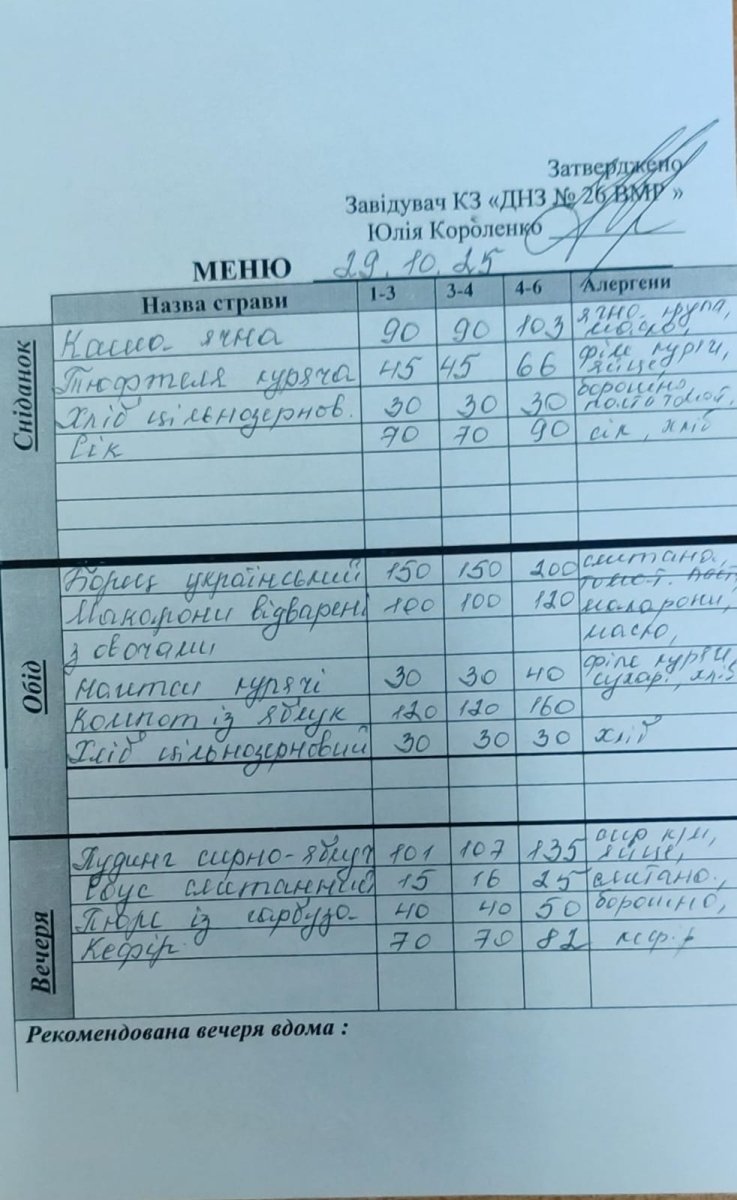 Затверджено
Завідувач КЗ «ДНЗ № 26 ВМР »
Юлія Короленко
МЕНЮ 29.10.25
Назва страви 1-3 3-4 4-6 Алергени
Сніданок
Каша ячна 90 90 103 ячна крупа, масло,
Тюфтеля куряча 45 45 66 філе куряч, яйце
Хліб цільнозернов. 30 30 30 борошно
Сік 70 70 90 сік, хліб
Обід
Борщ український 150 150 200 сметана,
Макарони відварені 100 100 120 макарони,
з овочами масло,
Нагитси курячі 30 30 40 філе куряч, сухар., хліб
Компот із яблук 120 120 160
Хліб цільнозерновий 30 30 30 хліб
Вечеря
Пудинг сирно-яблуч 101 107 135 сир к/м, яйце,
Соус сметанний 15 16 25 сметана,
Пюре із гарбуза 40 40 50 борошно,
Кефір 70 70 82 кефір
Рекомендована вечеря вдома :